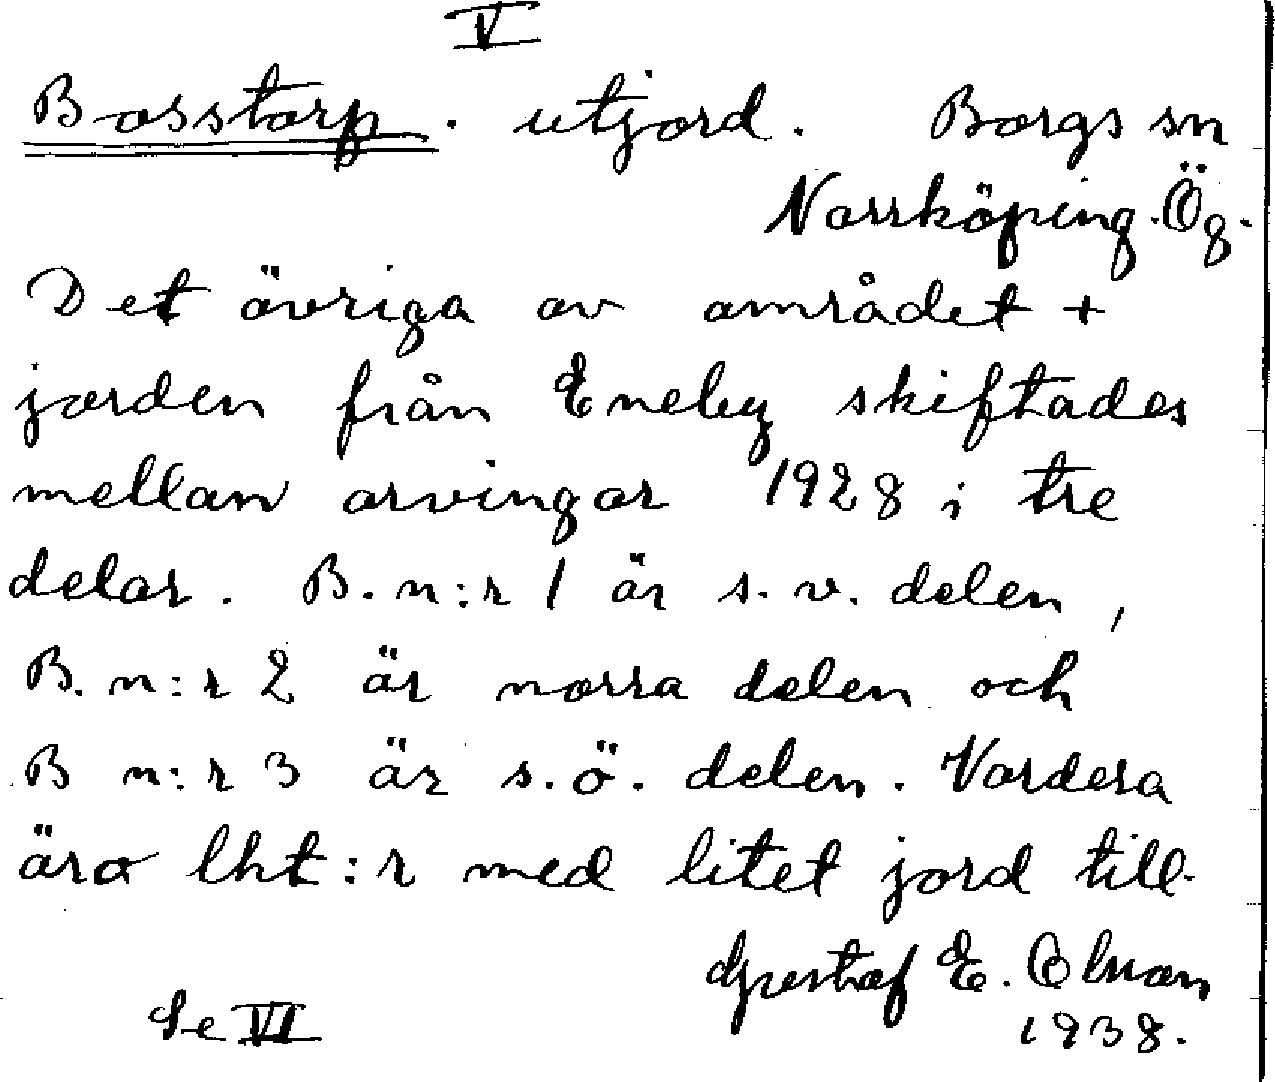 V
Bosstorp. utjord. Borgs sn
Norrköping. Ög.
Det övriga av området +
jorden från Eneby skiftades
mellan arvingar 1928 i tre
delar. B. n:r 1 är s.v. delen,
B. n:r 2 är norra delen och
B n:r 3 är s.ö. delen. Vardera
äro lht:r med litet jord till.
Gustaf E. Olman
Se VI 1938.